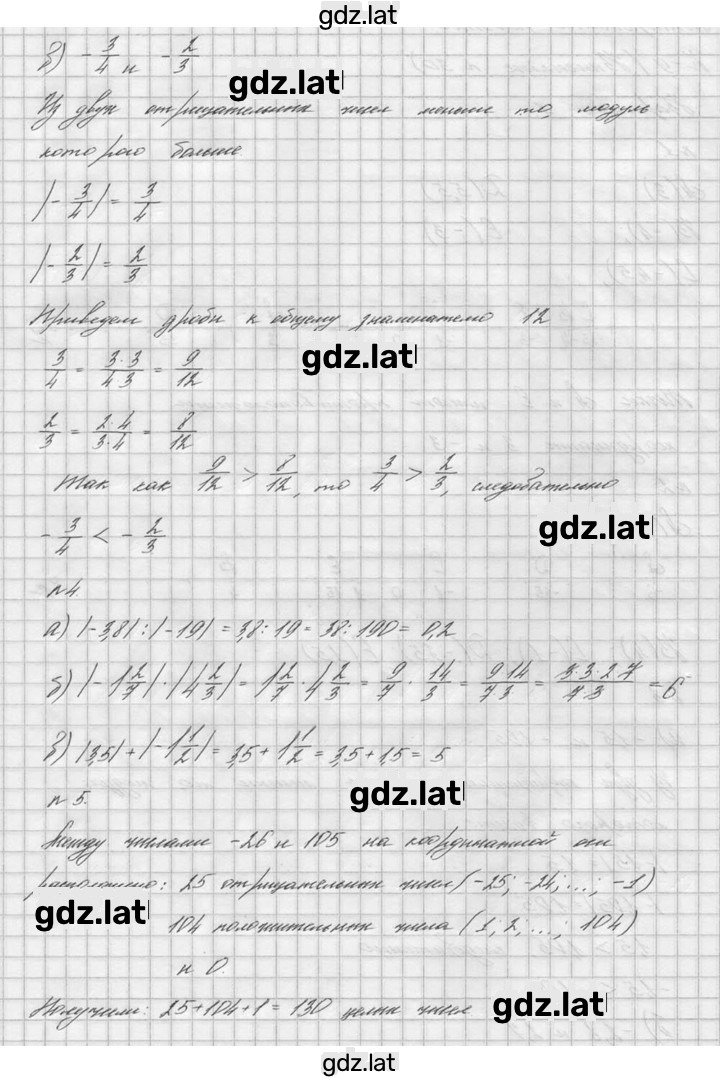 gdz.lat
в) -3/4 и -2/3
gdz.lat
Из двух отрицательных чисел меньше то, модуль
которого больше.
|-3/4| = 3/4
|-2/3| = 2/3
Приведем дроби к общему знаменателю 12
gdz.lat
3/4 = 3·3/4·3 = 9/12
2/3 = 2·4/3·4 = 8/12
Так как 9/12 > 8/12, то 3/4 > 2/3, следовательно
gdz.lat
-3/4 < -2/3
№4.
а) |-3,8| : |-19| = 3,8 : 19 = 38 : 190 = 0,2
б) |-1 2/7| · |4 2/3| = 1 2/7 · 4 2/3 = 9/7 · 14/3 = 9·14/7·3 = 3·3·2·7/7·3 = 6
в) |3,5| + |-1 1/2| = 3,5 + 1 1/2 = 3,5 + 1,5 = 5
gdz.lat
№5.
Между числами -26 и 105 на координатной оси
расположено: 25 отрицательных чисел (-25; -24; ...; -1)
gdz.lat
104 положительных числа (1; 2; ...; 104)
и 0.
Получили: 25+104+1 = 130 целых чисел
gdz.lat
gdz.lat